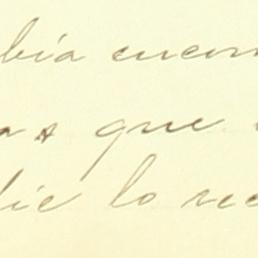 bía encon
as que
die lo rec